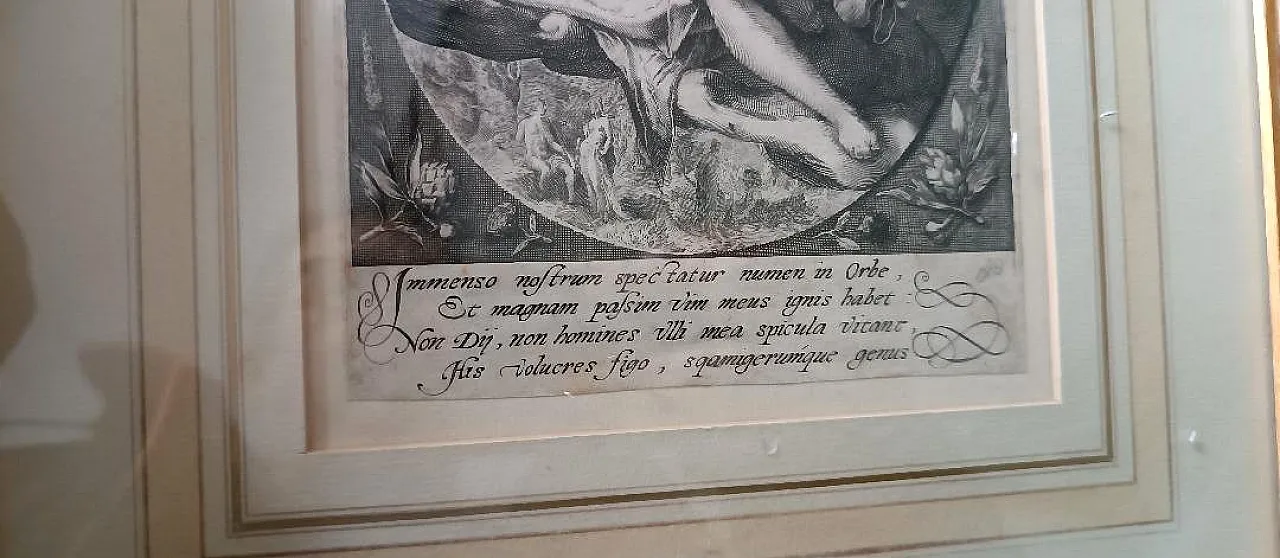 Immenso noſtrum spectatur numen in Orbe,
Et magnam paſsim vim meus ignis habet:
Non Dij, non homines vlli mea spicula vitant,
His volucres figo, sqamigerumque genus